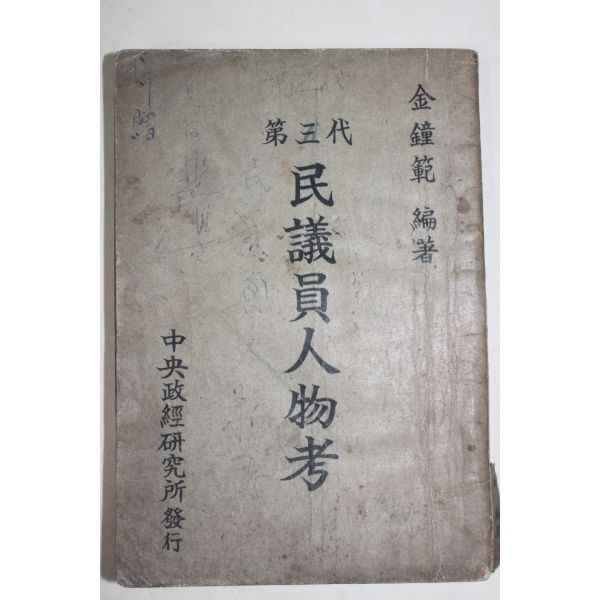 金鐘範 編著
第三代
民議員人物考
中央政經硏究所 發行